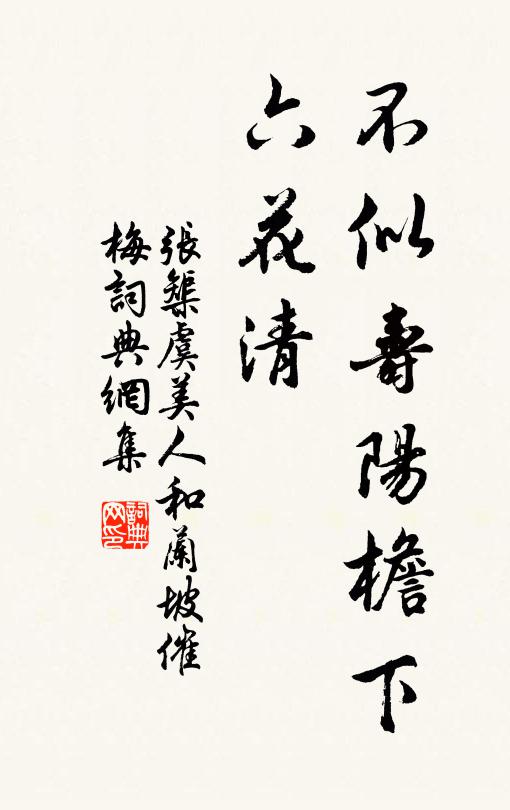 不似壽陽檐下
六花清
張榘虞美人和蘭坡催
梅詞典網集
詞典网印